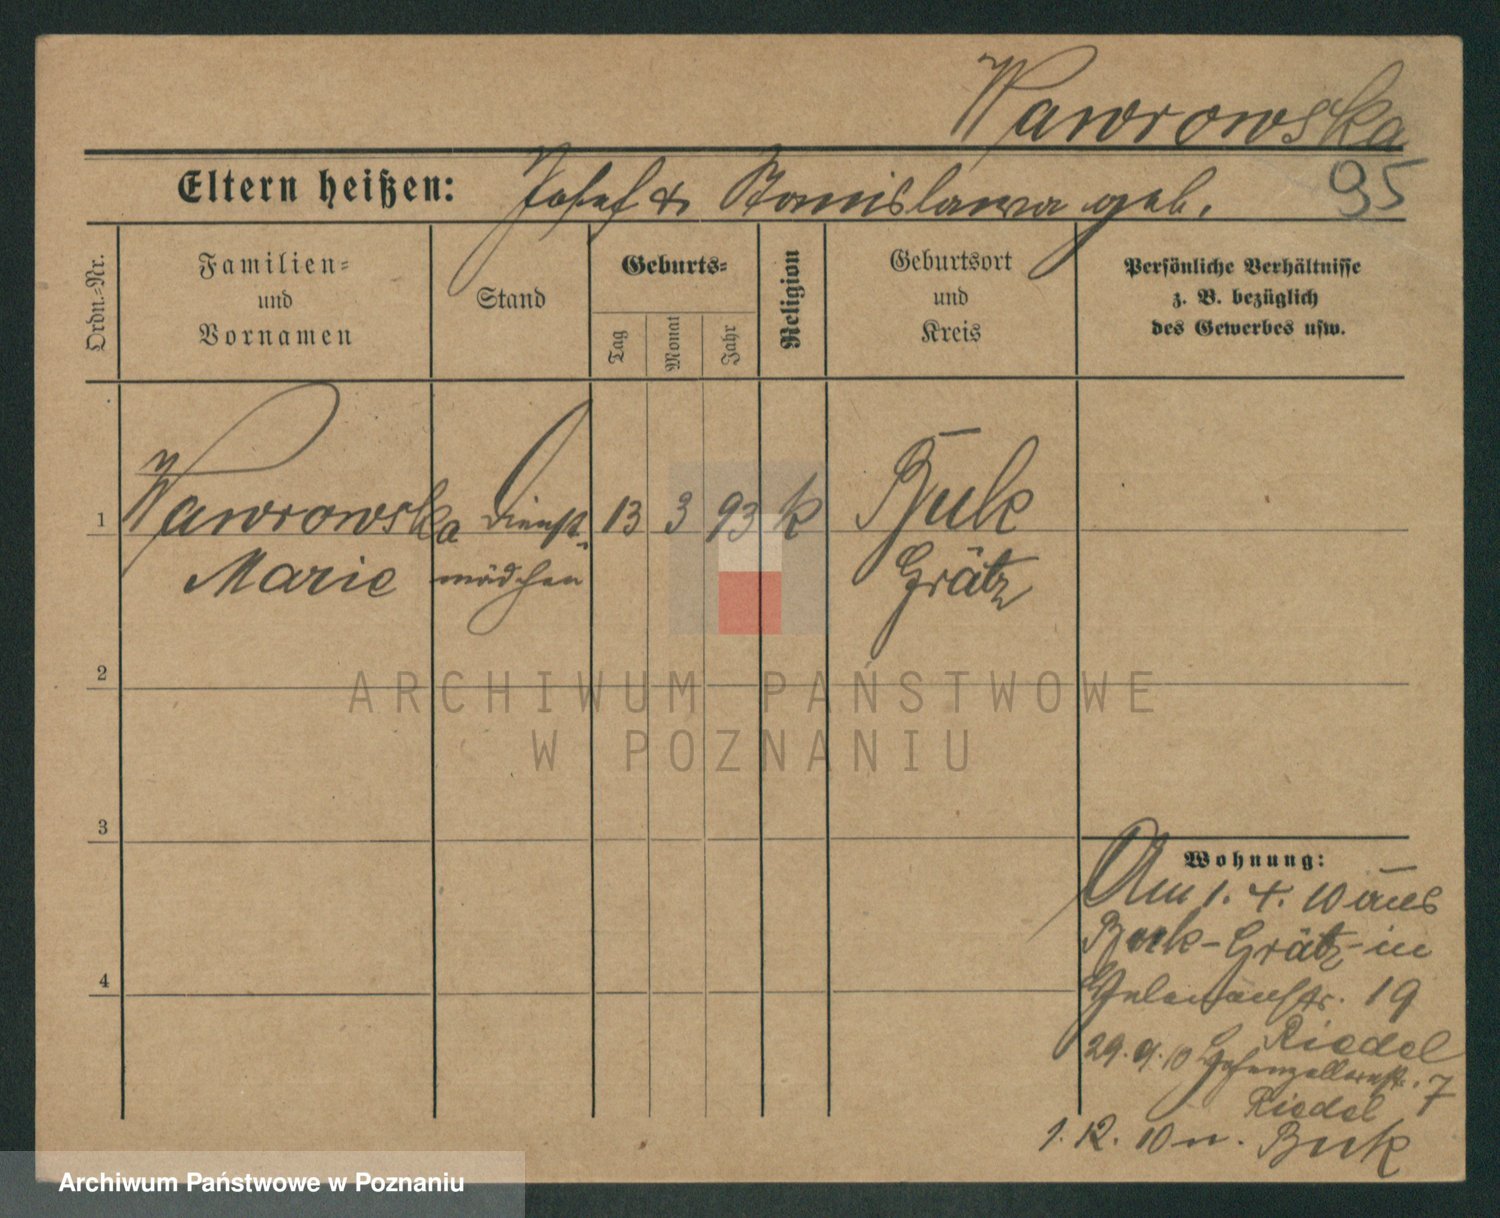 Wawrowska
95
Eltern heißen: Josef & Stanislawa geb.
Ordn.-Nr.
Familien-
und
Vornamen
Stand
Geburts-
Tag
Monat
Jahr
Religion
Geburtsort
und
Kreis
Persönliche Verhältnisse
z. B. bezüglich
des Gewerbes usw.
1 Wawrowska Dienst- 13 3 93 k Buk
Marie mädchen Grätz
2
3
4
Wohnung:
Am 1. 4. 10 aus
Buk-Grätz in
19
Riedel
29. 9. 10 Hohenzollernstr. 7
Riedel
1. 12. 10 n. Buk
ARCHIWUM PAŃSTWOWE
W POZNANIU
Archiwum Państwowe w Poznaniu